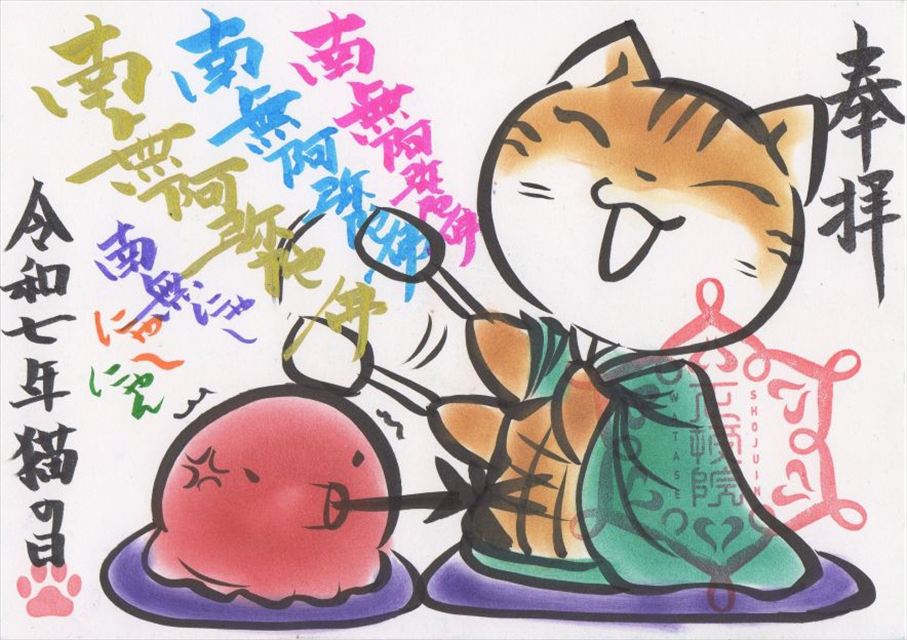 奉拝
南無阿弥陀佛
南無阿弥陀佛
南無阿弥陀佛
南無にゃ～
にゃ～
にゃん
令和七年猫の日
正授院
SHOJUIN
WATASE